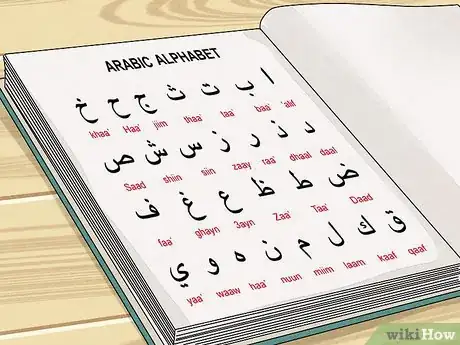 ARABIC ALPHABET
ا ب ت ث ج ح خ
khaa' Haa' jiim thaa' taa' baa' 'alif
د ذ ر ز س ش ص
Saad shiin siin zaay raa' dhaal daal
ض ط ظ ع غ ف
faa' ghayn 3ayn Zaa' Taa' Daad
ق ك ل م ن ه و ي
yaa' waaw haa' nuun miim laam kaaf qaaf
wikiHow